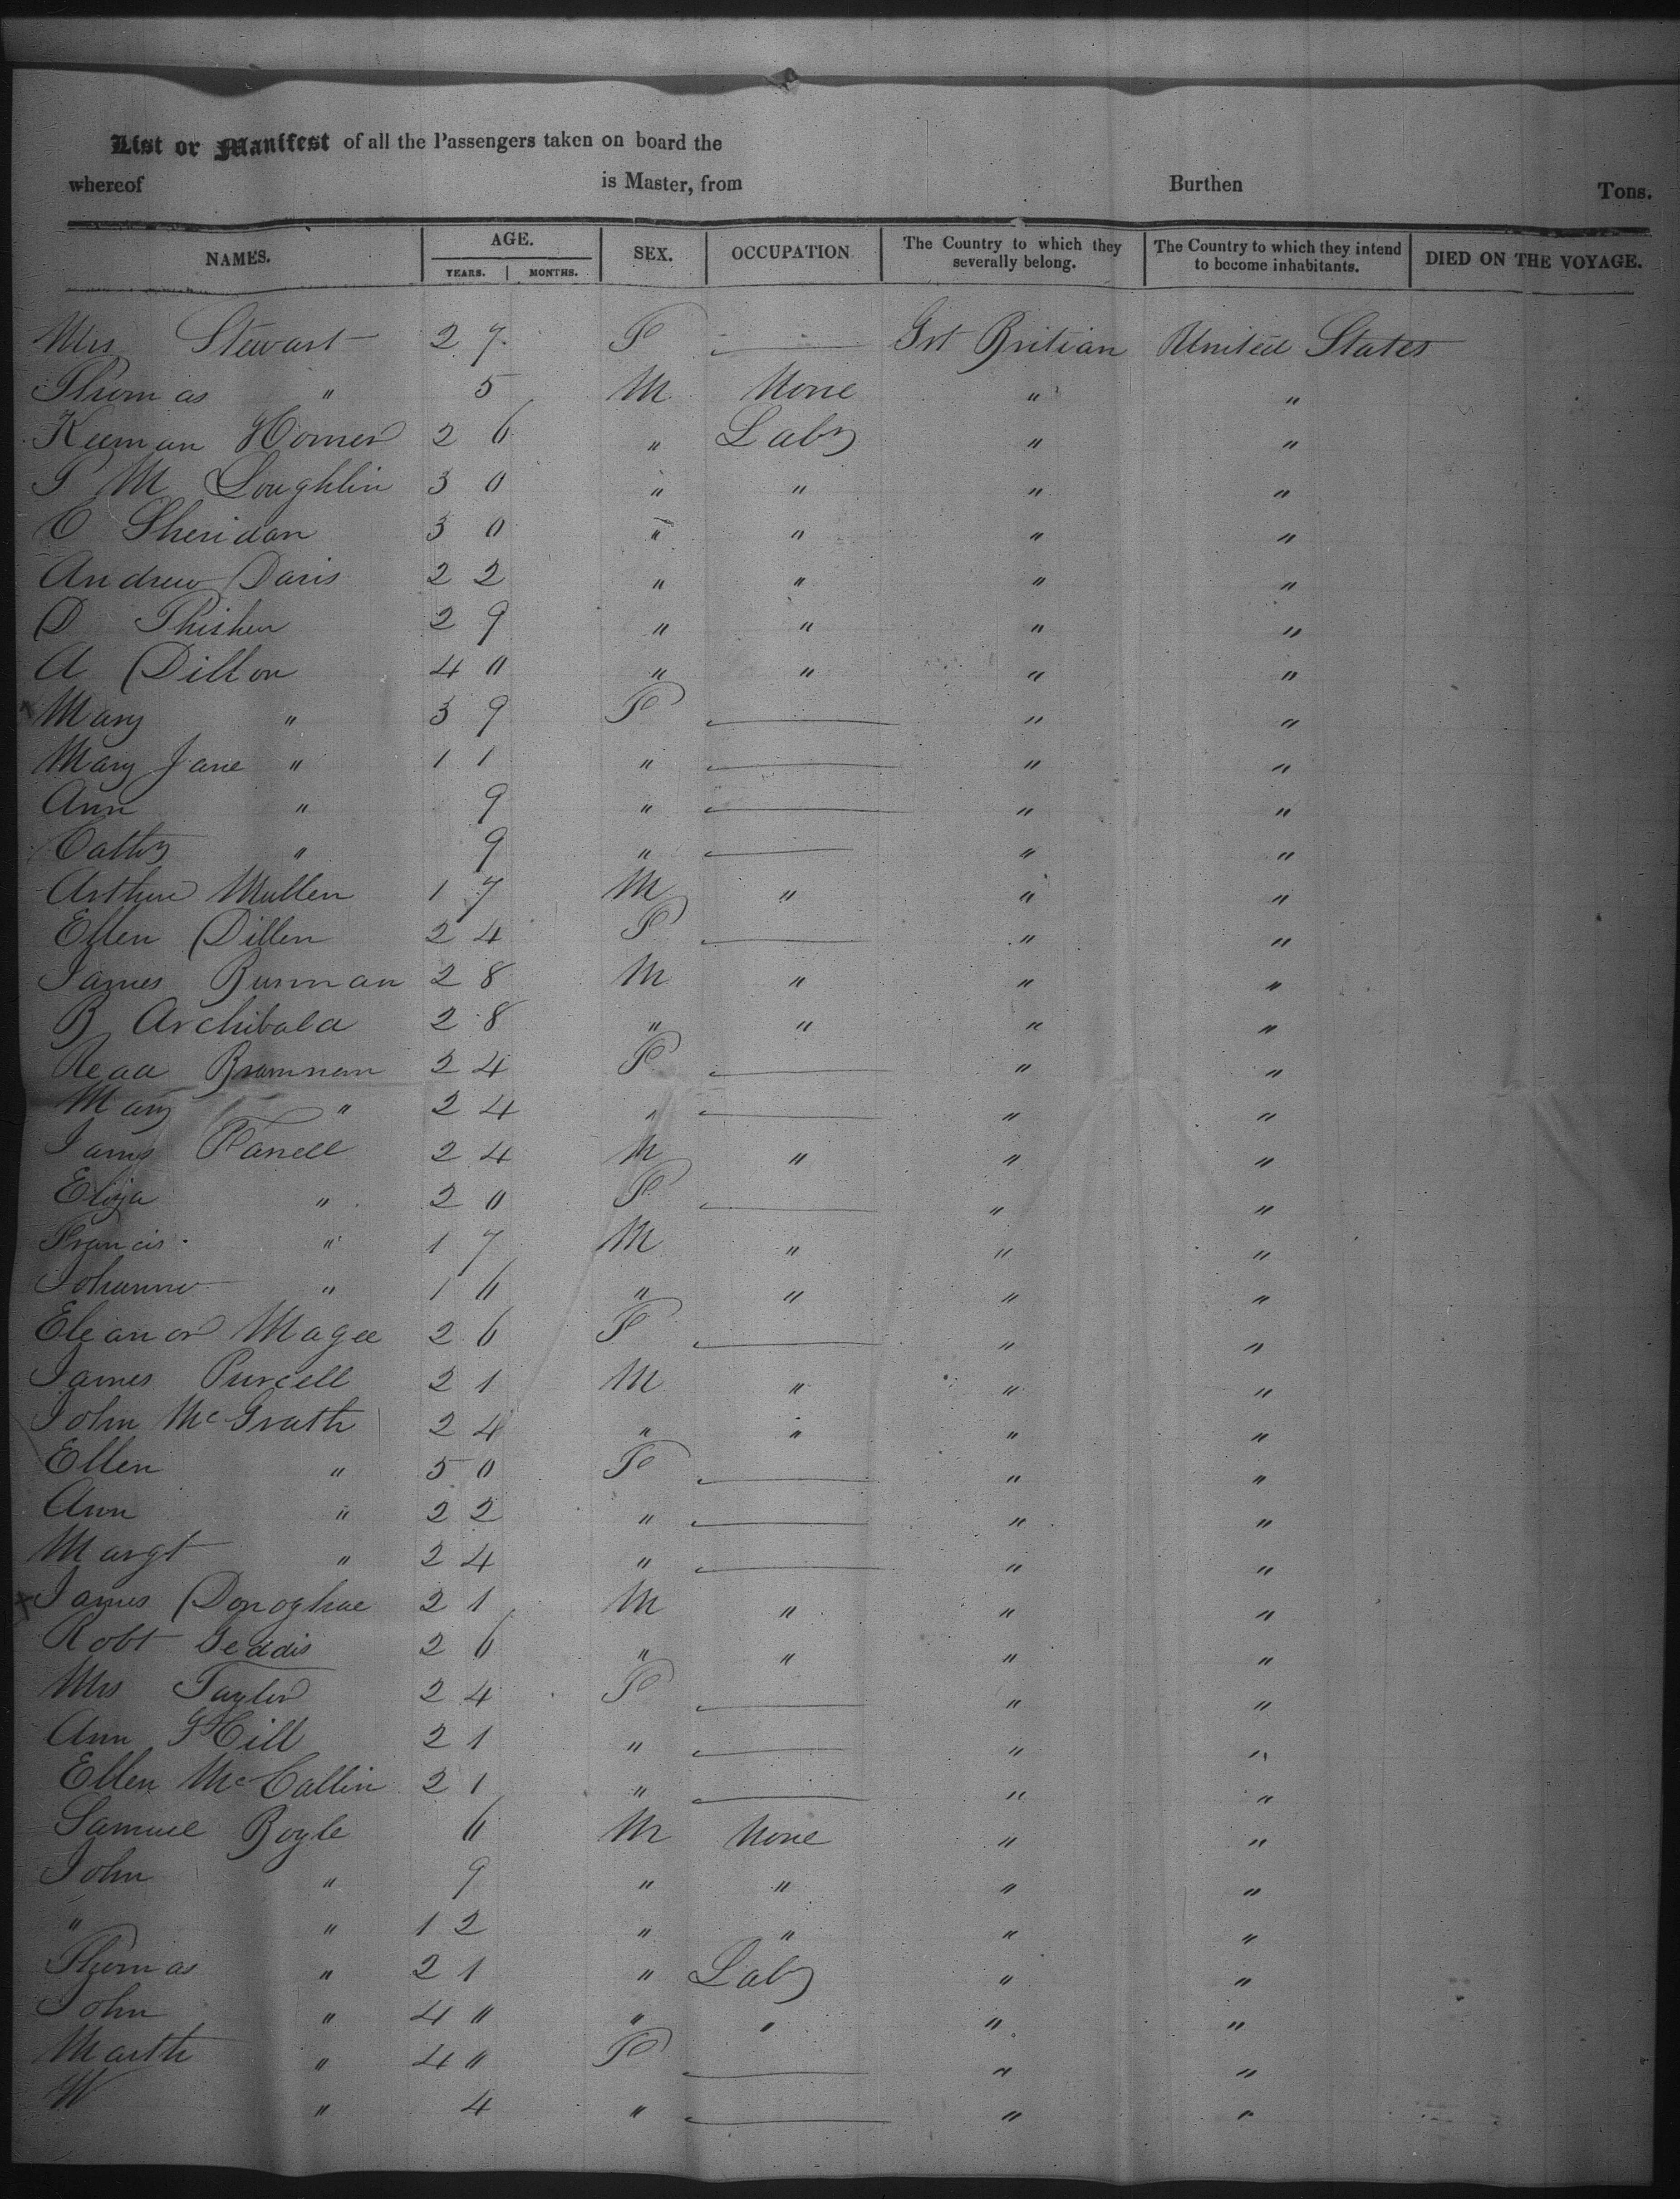 List or Manifest of all the Passengers taken on board the
whereof is Master, from Burthen Tons.
NAMES. AGE. YEARS. MONTHS. SEX. OCCUPATION The Country to which they severally belong. The Country to which they intend to become inhabitants. DIED ON THE VOYAGE.
Mrs Stewart 27 F Grt Britian United States
Thomas " 5 M None " "
Keeman Homer 26 " Labr " "
P M Loughlin 30 " " " "
C Sheridan 30 " " " "
Andrew Davis 22 " " " "
D 29 " " " "
A Dillon 4 " " " " "
Mary " 39 F " "
Mary Jane " 11 " " "
Ann " 9 " " "
Cathy " 9 " " "
Arthur Mullen 17 M " " "
Ellen Dillen 24 F " "
James Burnman 28 M " " "
B Archibald 28 " " " "
24 F " "
Mary " 24 " " "
James Farrell 24 M " " "
Eliza " 20 F " "
Francis " 17 M " " "
Johanna " 1 6 " " " "
Eleanor Magee 26 F " "
James Purcell 21 M " " "
John McGrath 24 " " " "
Ellen " 50 F " "
Ann " 22 " " "
Margt " 24 " " "
James Donoghue 21 M " " "
Robt Geddis 26 " " " "
Mrs Taylor 24 F " "
Ann Hill 21 " " "
Ellen McCallin 21 " " "
Samuel Boyle 6 M None " "
John " 9 " " " "
" " 12 " " " "
Thomas " 21 " Labr " "
John " 4 " " " " "
Marth " 4 " F " "
W " 4 " " "